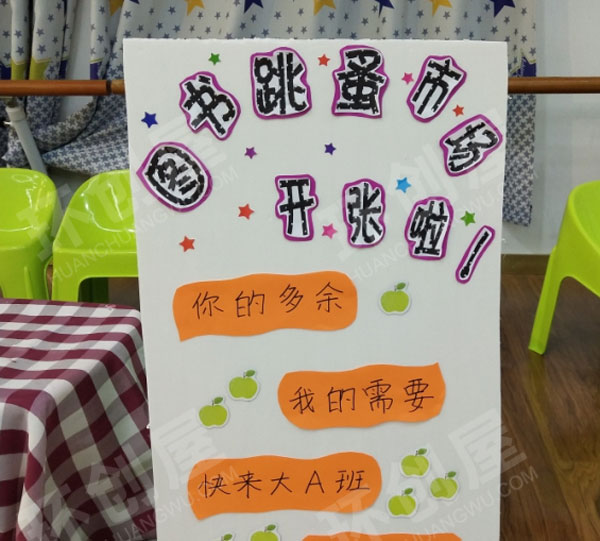 图书跳蚤市场
开张啦！
你的多余
我的需要
快来大A班
环创屋
HUANCHUANGWU.COM